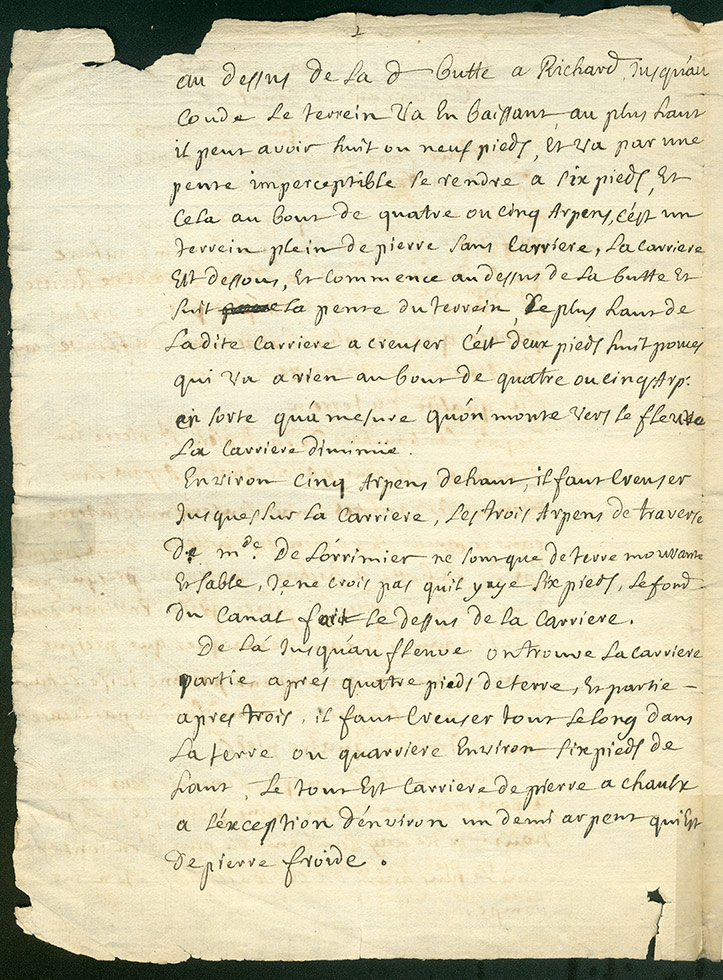 au dessus de la d butte a Richard, Jusqu'au
Coude le terrein va En baissant, au plus haut
il peut avoir huit ou neuf pieds, Et va par une
pente imperceptible se rendre a six pieds, Et
Cela au bout de quatre ou cinq Arpens, c'ést un
terrein plein de pierre sans Carriere, La carriere
Est dessous, Et commence au dessus de la butte Et
suit la pente du terrein, Le plus haut de
La dite Carriere a creuser C'ést deux pieds huit pouces
qui va a rien au bout de quatre ou cinq Arp.
en sorte qu'a mesure qu'on monte vers le fleuve
La Carriere diminüe.
Environ Cinq Arpens de haut, il faut Creuser
Jusques sur la Carriere, Les trois Arpens de traverse
De mde. De Lorrimier ne sont que de terre mouvante
Et sable, Je ne crois pas qu'il y aye six pieds, Le fond
Du Canal fait le dessus de la Carriere.
De Lá Jusqu'au fleuve on trouve la carriere
partie aprés quatre pieds de terre, Et partie –
apres trois, il faut Creuser tout le long dans
La terre ou quarriere Environ six pieds de
haut, Le tout Est Carriere de pierre a chaulx
a L'éxception d'énviron un demi arpent qui Est
De pierre froide.